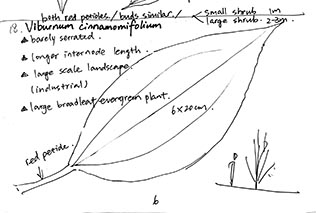 both red petioles / buds similar / small shrub 1m
large shrub 2-3m.
12. Viburnum cinnamomifolium
▲ barely serrated.
▲ longer internode length.
▲ large scale landscape
(industrial)
▲ large broadleaf evergreen plant.
6×20cm.
red petiole.
6